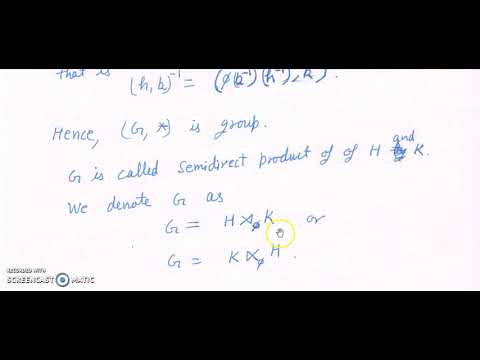 that is
(h, k)⁻¹ = (ϕ(k⁻¹)(h⁻¹), k⁻¹).
Hence, (G, *) is group.
G is called Semidirect product of of H and K.
We denote G as
G = H ⋊ϕ K or
G = K ⋉ϕ H.
RECORDED WITH
SCREENCAST MATIC